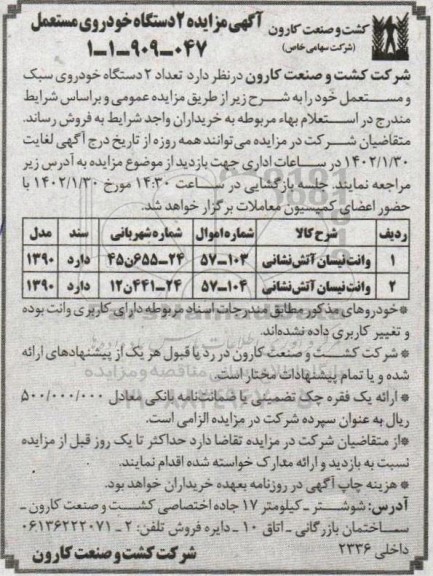 آگهی مزایده ۲ دستگاه خودروی مستعمل
۱-۱-۹۰۹-۰۴۷
کشت و صنعت کارون
(شرکت سهامی خاص)
شرکت کشت و صنعت کارون درنظر دارد تعداد ۲ دستگاه خودروی سبک
و مستعمل خود را به شرح زیر از طریق مزایده عمومی و براساس شرایط
مندرج در استعلام بهاء مربوطه به خریداران واجد شرایط به فروش رساند.
متقاضیان شرکت در مزایده می‌توانند همه روزه از تاریخ درج آگهی لغایت
۱۴۰۲/۱/۳۰ در ساعات اداری جهت بازدید از موضوع مزایده به آدرس زیر
مراجعه نمایند. جلسه بازگشایی در ساعت ۱۴:۳۰ مورخ ۱۴۰۲/۱/۳۰ با
حضور اعضای کمیسیون معاملات برگزار خواهد شد.
ردیف شرح کالا شماره اموال شماره شهربانی سند مدل
۱ وانت نیسان آتش نشانی ۱۰۳-۵۷ ۲۴-۶۵۵ن۴۵ دارد ۱۳۹۰
۲ وانت نیسان آتش نشانی ۱۰۴-۵۷ ۲۴-۴۴۱ن۱۲ دارد ۱۳۹۰
*خودروهای مذکور مطابق مندرجات اسناد مربوطه دارای کاربری وانت بوده
و تغییر کاربری داده نشده‌اند.
* شرکت کشت و صنعت کارون در رد یا قبول هر یک از پیشنهادهای ارائه
شده و یا تمام پیشنهادات مختار است.
* ارائه یک فقره چک تضمینی یا ضمانتنامه بانکی معادل ۵۰۰/۰۰۰/۰۰۰
ریال به عنوان سپرده شرکت در مزایده الزامی است.
*از متقاضیان شرکت در مزایده تقاضا دارد حداکثر تا یک روز قبل از مزایده
نسبت به بازدید و ارائه مدارک خواسته شده اقدام نمایند.
* هزینه چاپ آگهی در روزنامه بعهده خریداران خواهد بود.
آدرس: شوشتر - کیلومتر ۱۷ جاده اختصاصی کشت و صنعت کارون -
ساختمان بازرگانی - اتاق ۱۰ - دایره فروش تلفن: ۲ - ۰۶۱۳۶۲۲۲۰۷۱
داخلی ۲۳۳۶
شرکت کشت و صنعت کارون